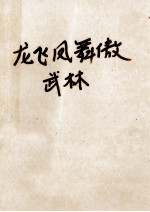 龙飞凤舞傲
武林